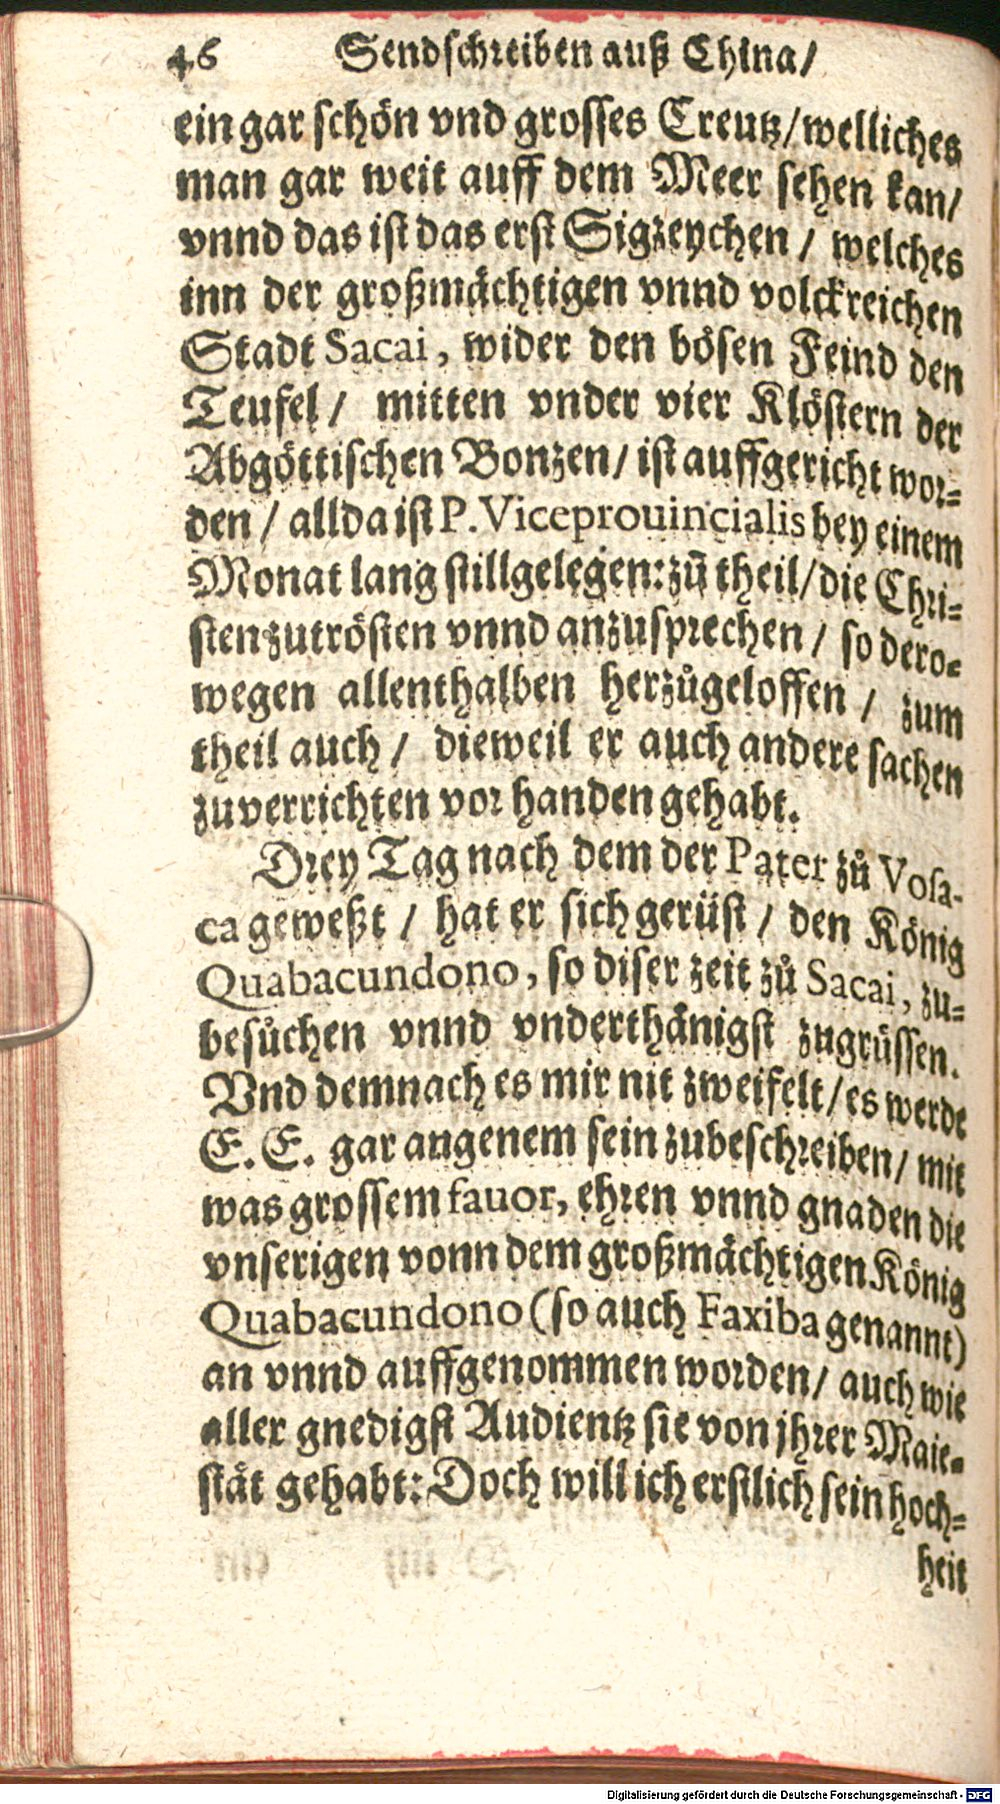 46 Sendschreiben auß China/
ein gar schön vnd grosses Creutz/welliches
man gar weit auff dem Meer sehen kan/
vnnd das ist das erst Sigzeychen / welches
inn der großmächtigen vnnd volckreichen
Stadt Sacai, wider den bösen Feind den
Teufel / mitten vnder vier Klöstern der
Abgöttischen Bonzen/ ist auffgericht wor-
den / allda ist P. Viceprouincialis bey einem
Monat lang stillgelegen: zů theil/die Chri-
sten zutrösten vnnd anzusprechen / so dero-
wegen allenthalben herzůgeloffen / zum
theil auch / dieweil er auch andere sachen
zuverrichten vor handen gehabt.
Drey Tag nach dem der Pater zů Vosa-
ca geweßt / hat er sich gerüst / den König
Quabacundono, so diser zeit zů Sacai, zu-
besůchen vnnd vnderthänigst zugrüssen.
Vnd demnach es mir nit zweifelt/es werde
E. E. gar angenem sein zubeschreiben/ mit
was grossem fauor, ehren vnnd gnaden die
vnserigen vonn dem großmächtigen König
Quabacundono (so auch Faxiba genannt)
an vnnd auffgenommen worden/ auch wie
aller gnedigst Audientz sie von jhrer Maie-
stät gehabt: Doch will ich erstlich sein hoch-
heit
Digitalisierung gefördert durch die Deutsche Forschungsgemeinschaft - DFG